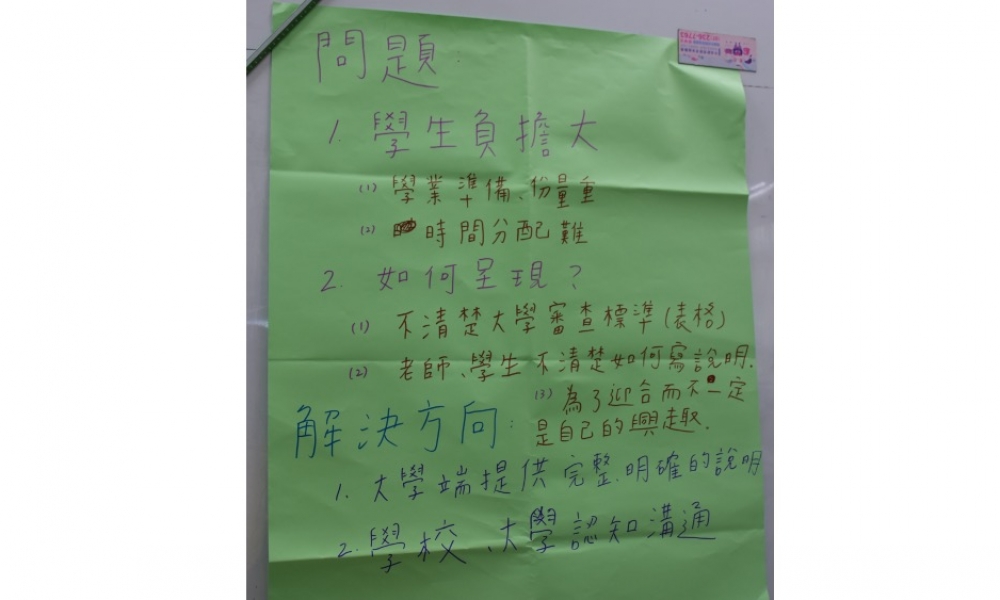 問題:
1. 學生負擔大
(1) 學業準備、份量重
(2) 時間分配難
2. 如何呈現?
(1) 不清楚大學審查標準(表格)
(2) 老師、學生不清楚如何寫說明.
(3) 為了迎合而不一定
是自己的興趣.
解決方向:
1. 大學端提供完整、明確的說明
2. 學校、大學認知溝通